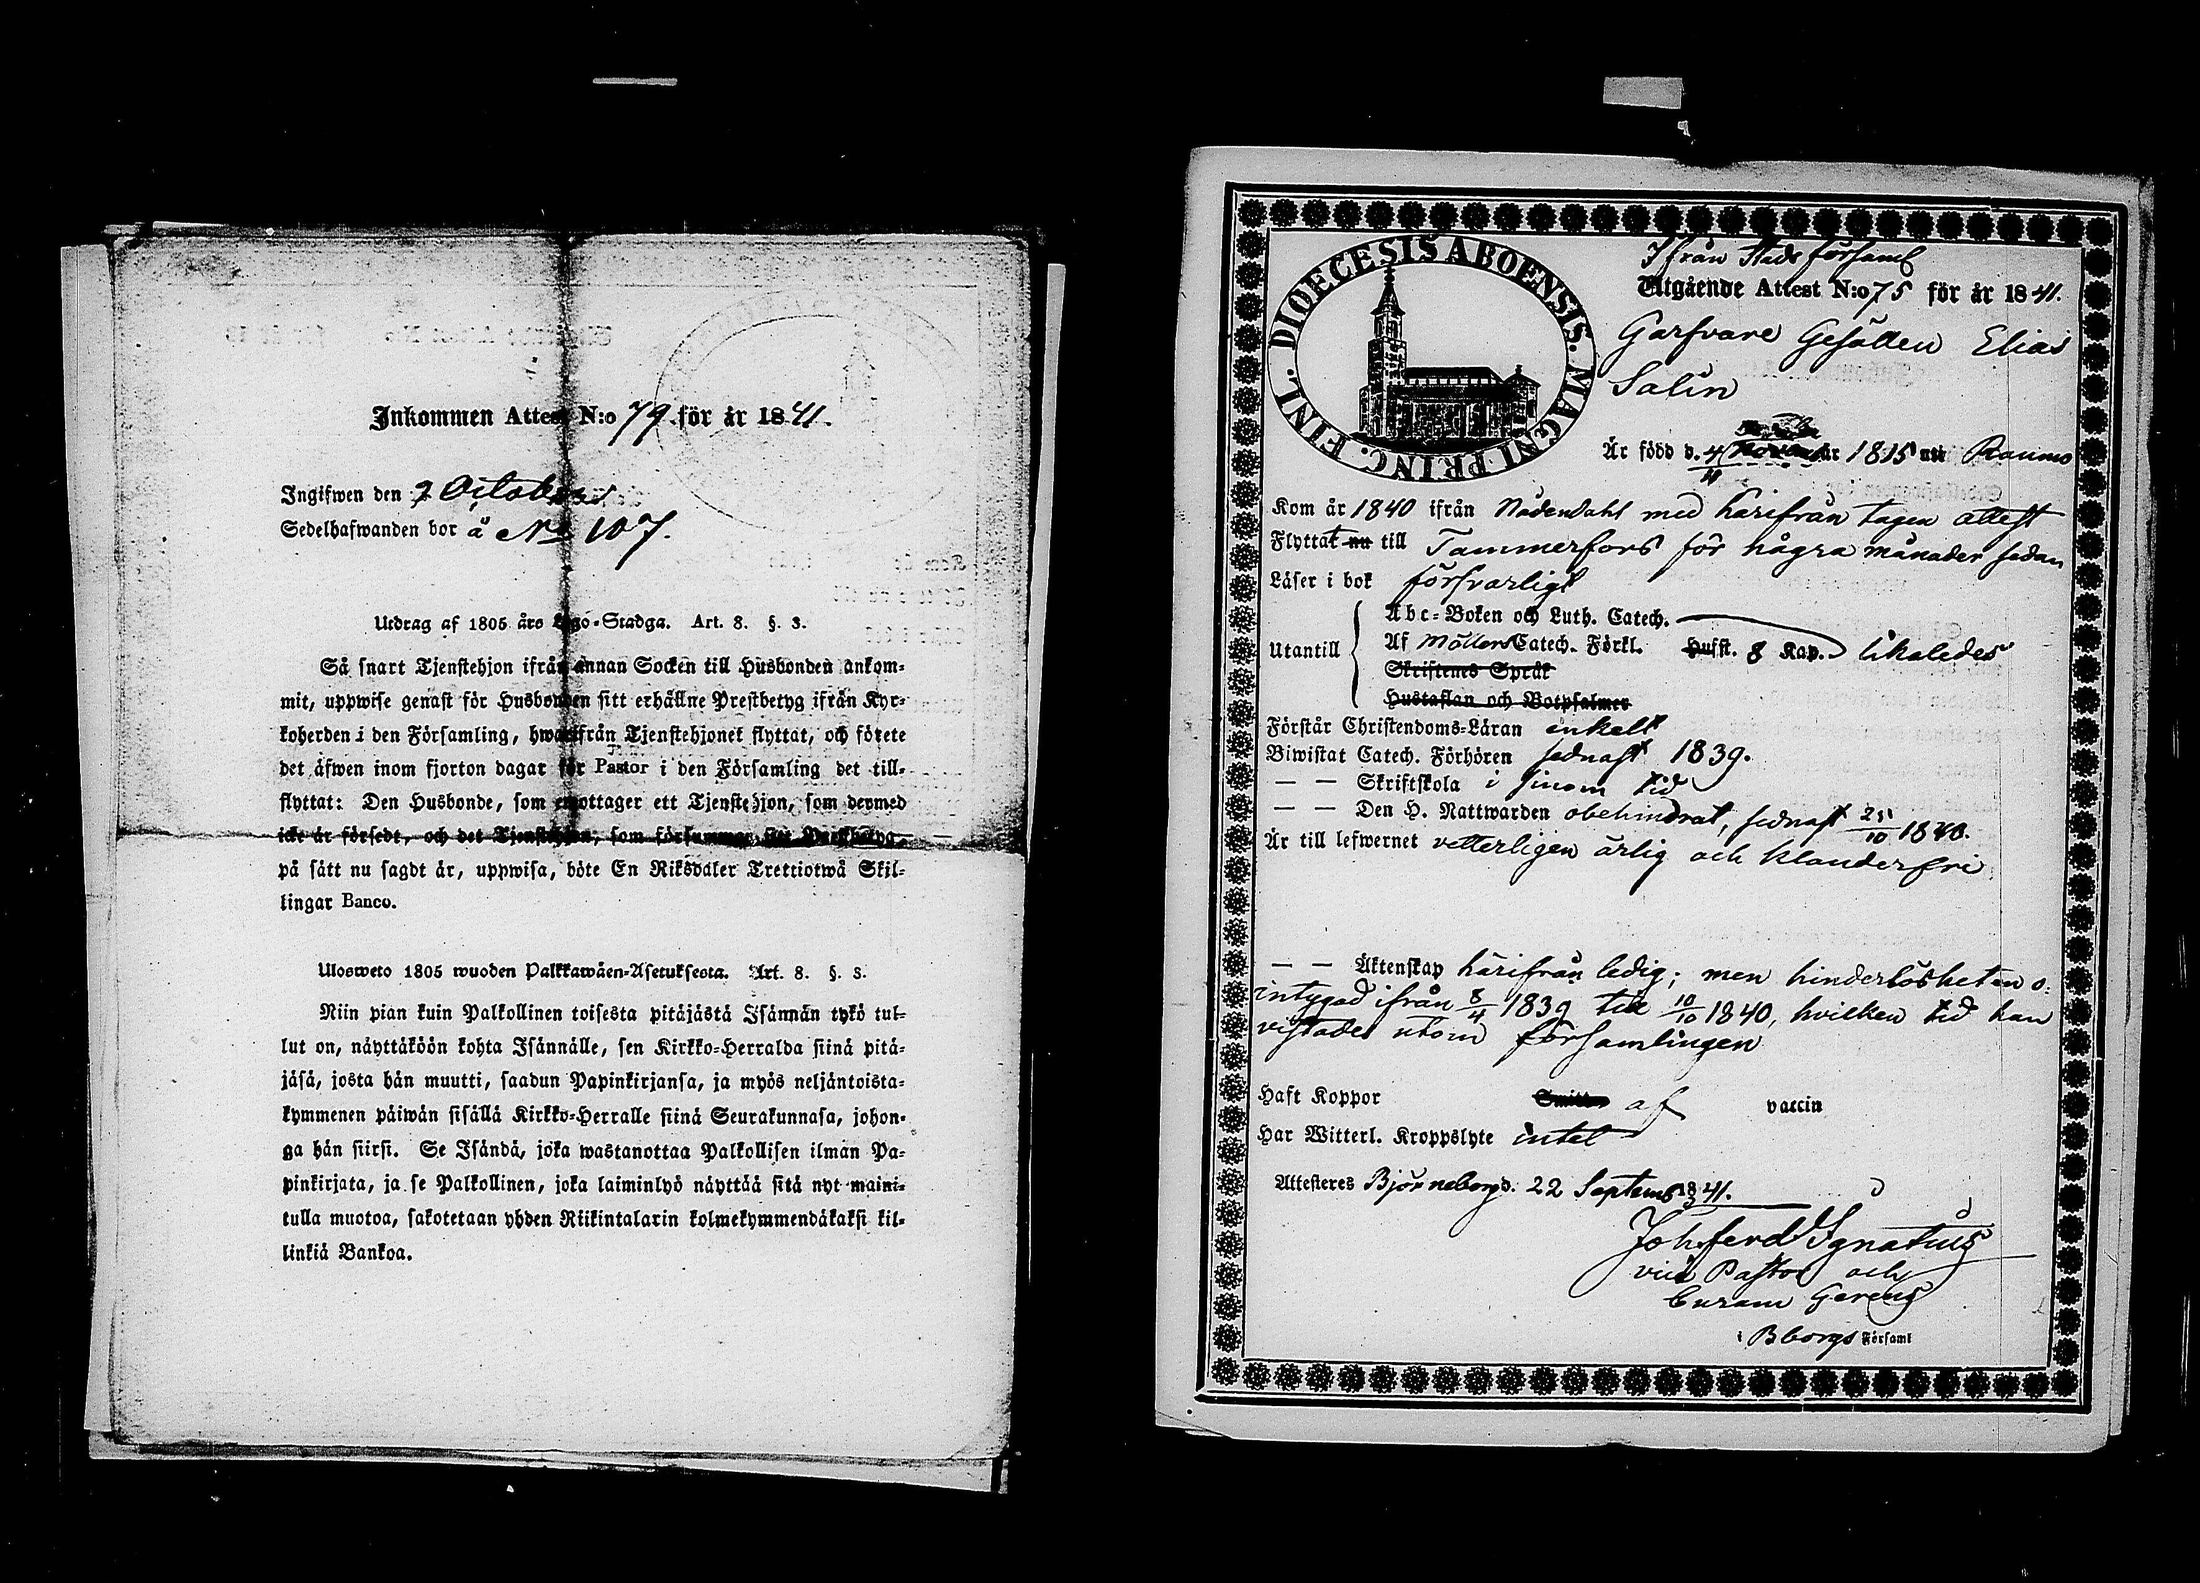 Inkommen Attest N:o 79 för år 1841.
Ingifwen den 7 Octobris
Sedelhafwanden bor å No 107.
Utdrag af 1805 års Lego-Stadga. Art. 8. §. 3.
Så snart Tjenstehjon ifrån annan Socken till Husbonden ankom-
mit, uppwise genast för Husbonden sitt erhållne Prestbetyg ifrån Kyr-
koherden i den Församling, hwarifrån Tjenstehjonet flyttat, och förete
det äfwen inom fjorton dagar för Pastor i den Församling det till-
flyttat: Den Husbonde, som emottager ett Tjenstehjon, som dermed
icke är försedt, och det Tjenstehjon, som försummar sitt Prestbetyg,
på sätt nu sagdt är, uppwisa, böte En Riksdaler Trettiotwå Skil-
lingar Banco.
Ulosweto 1805 wuoden Palkkawäen-Asetuksesta. Art. 8. §. 3.
Niin pian kuin Palkollinen toisesta pitäjästä Isännän tykö tul-
lut on, näyttäköön kohta Isännälle, sen Kirkko-Herralda siinä pitä-
jäsä, josta hän muutti, saadun Papinkirjansa, ja myös neljäntoista-
kymmenen päiwän sisällä Kirkko-Herralle siinä Seurakunnasa, johon-
ga hän siirsi. Se Isändä, joka wastanottaa Palkollisen ilman Pa-
pinkirjata, ja se Palkollinen, joka laiminlyö näyttää sitä nyt maini-
tulla muotoa, sakotetaan yhden Riikintalarin kolmekymmendäkaksi kil-
linkiä Bankoa.
DIOECESIS ABOENSIS. MAGNI PRINC. FINL.
Ifrån Stads församl
Utgående Attest N:o 75 för år 1841.
Garfvare Gesällen Elias
Salin
Är född d. 4/11 år 1815 uti Raumo
Kom år 1840 ifrån Nådendahl med härifrån tagen attest
Flyttat nu till Tammerfors för några månader sedan
Läser i bok försvarligt
Abc-Boken och Luth. Catech.
Utantill Af Möllers Catech. Förkl. Hufst. 8 Kap. likaledes
Skriftenes Språk
Hustaflan och Botpsalmer
Förstår Christendoms-Läran enkelt
Biwistat Catech. Förhören sednast 1839.
— — Skriftskola i sinom tid
— — Den H. Nattwarden obehindrat, sednast 25/10 1840.
Är till lefwernet vetterligen ärlig och klanderfri
— — Äktenskap härifrån ledig; men hinderlösheten o-
intygad ifrån 8/4 1839 till 10/10 1840, hvilken tid han
vistades utom församlingen
Haft Koppor af vaccin
Har Witterl. Kroppslyte intet
Attesteres Björneborg d. 22 Septemb 1841.
Joh. Ferd. Ignatius
vice Pastor och
Curam Gerens
i Bborgs Församl